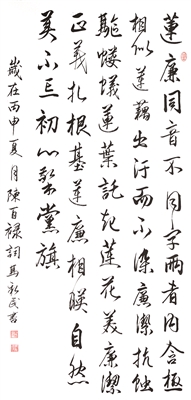 蓮廉同音不同字兩者內含極
相似蓮藕出汙而不染廉潔抗蝕
驅螻蟻蓮葉託起蓮花美廉潔
正義扎根基蓮廉相映自然
美不忘初心繫黨旗
歲在丙申夏月陳百祿詞馬